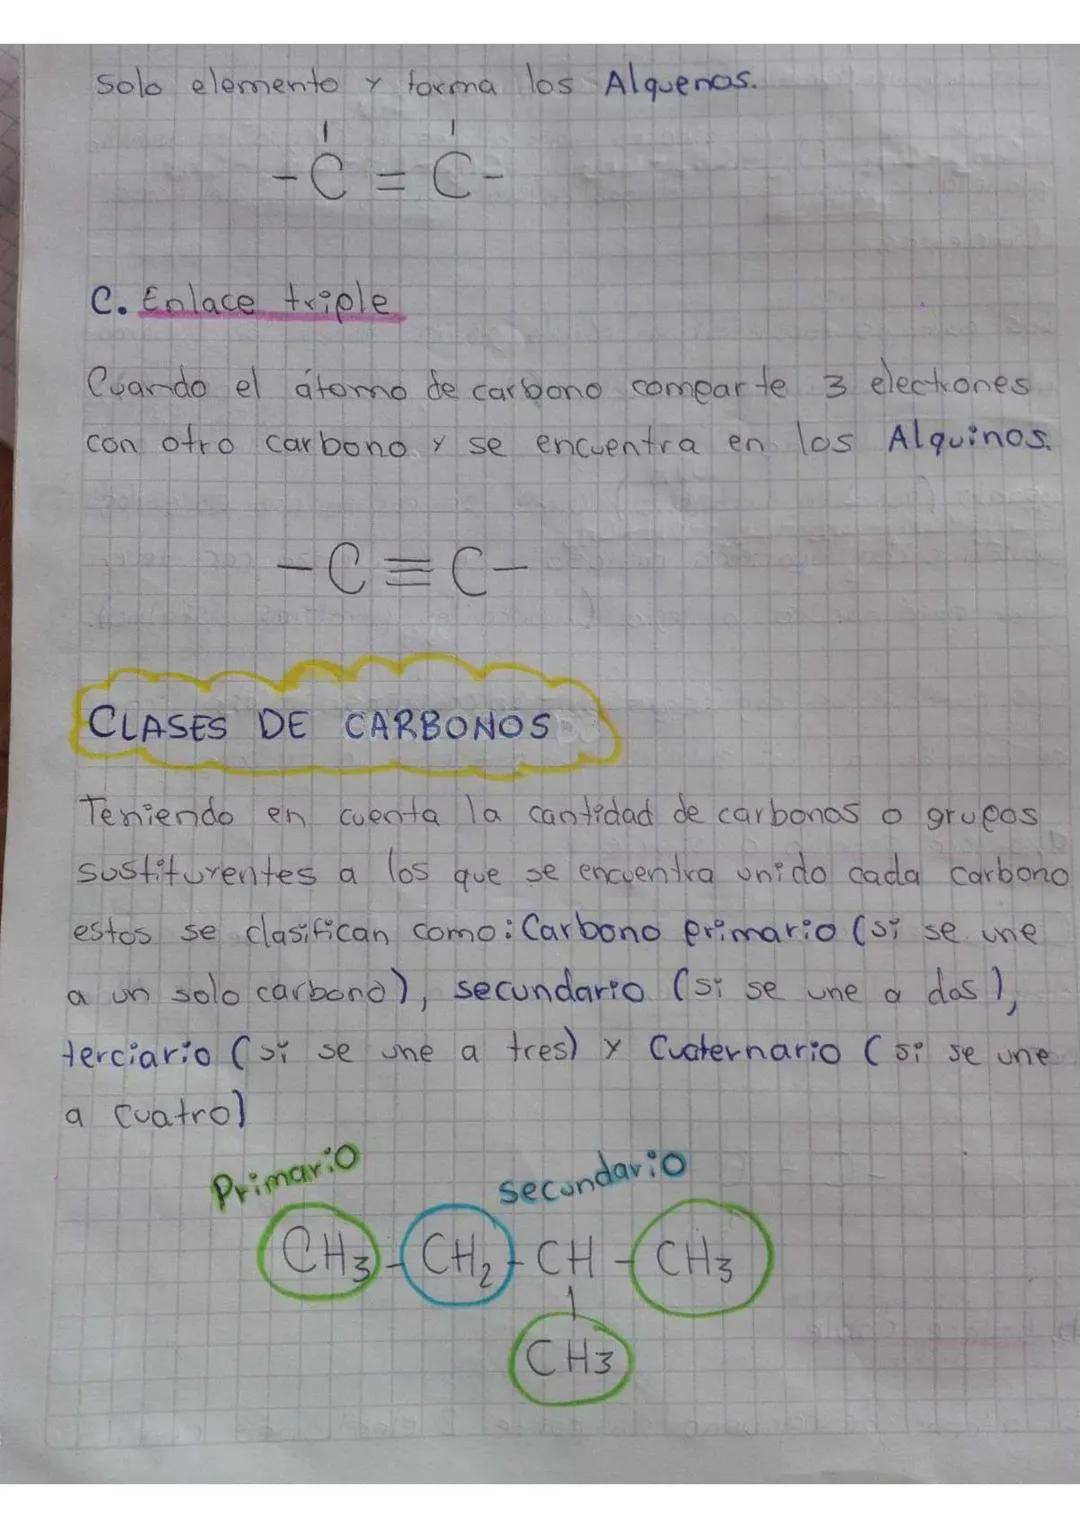 Solo elemento y forma los Alquenos.
-C = C-
C. Enlace triple
Cuando el átomo de carbono comparte 3 electrones
con otro carbono y se encuentra en los Alquinos.
-C≡C-
CLASES DE CARBONOS
Teniendo en cuenta la cantidad de carbonos o grupos
sustituyentes a los que se encuentra unido cada carbono
estos se clasifican como: Carbono primario (si se une
a un solo carbono), secundario (si se une a dos),
terciario (si se une a tres) y Cuaternario (si se une
a cuatro)
Primario secundario
CH3-CH2-CH-CH3
CH3